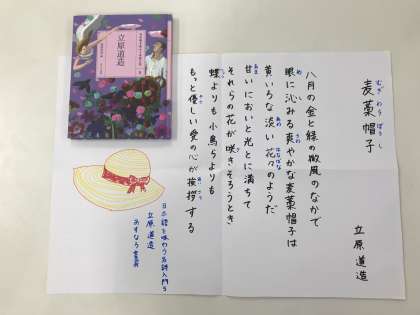 麦藁帽子
むぎわらぼうし
立原道造
八月の金と緑の微風のなかで
眼に沁みる爽やかな麦藁帽子は
め
し
さわ
黄いろな淡い花々のようだ
あわ
はなばな
甘いにおいと光とに満ちて
あま
み
それらの花が咲きそろうとき
蝶よりも小鳥らよりも
もっと優しい愛の心が挨拶する
やさ
あいさつ
日本語を味わう名詩入門5
立原道造
あすなろ書房
立原道造